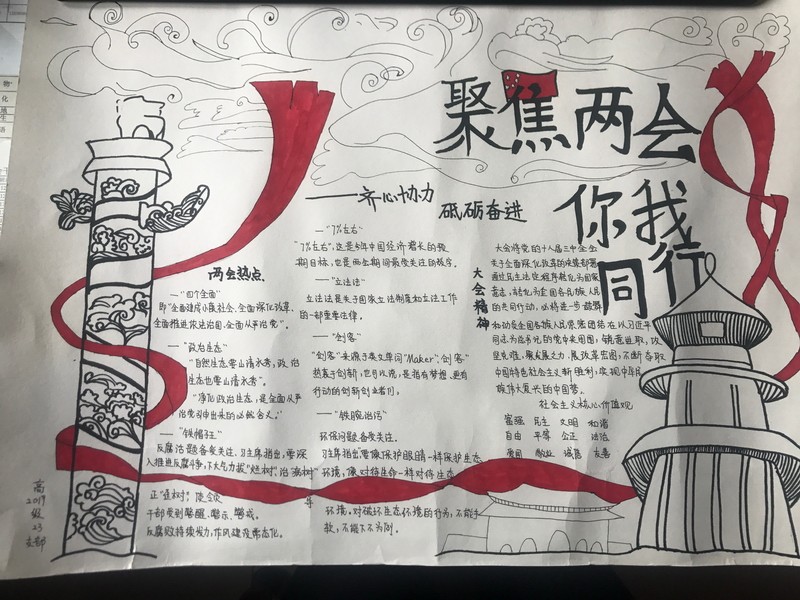 聚焦两会
你我
同行
——齐心协力
砥砺奋进
两会热点
—"四个全面"
即"全面建成小康社会、全面深化改革、
全面推进依法治国、全面从严治党"。
—"政治生态"
"自然生态要山清水秀,政治
生态也要山清水秀"。
"净化政治生态,是全面从严
治党引申出来的必然含义。"
—"铁帽子王"
反腐话题备受关注,习主席指出,要深
入推进反腐斗争,下大气力拔"烂树"治"病树"
正"歪树",使令
干部受到警醒、警示、警戒。
反腐败持续发力,作风建设常态化。
—"7%左右"
"7%左右",这是今年中国经济增长的预
期目标,也是两会期间最受关注的数字。
—"立法法"
立法法是关于国家立法制度和立法工作
的一部重要法律。
—"创客"
"创客"来源于英文单词"Maker","创客"
热衷于创新,也可以说,是指有梦想、更有
行动的创新创业者们。
—"铁腕治污"
环保问题备受关注。
习主席指出,要像保护眼睛一样保护生态
环境,像对待生命一样对待生态
环境,对破坏生态环境的行为,不能手
软,不能下不为例。
大会精神
大会将党的十八届三中全会
关于全面深化改革的决策部署
通过民主法定程序转化为国家
意志,转化为全国各族人民
的共同行动,必将进一步鼓舞
和动员全国各族人民紧密团结在以习近平
同志为总书记的党中央周围,锐意进取,攻
坚克难,聚发展之力,展改革宏图,不断夺取
中国特色社会主义新胜利,实现中华民
族伟大复兴的中国梦。
社会主义核心价值观
富强 民主 文明 和谐
自由 平等 公正 法治
爱国 敬业 诚信 友善
高
2019
级
23
支部